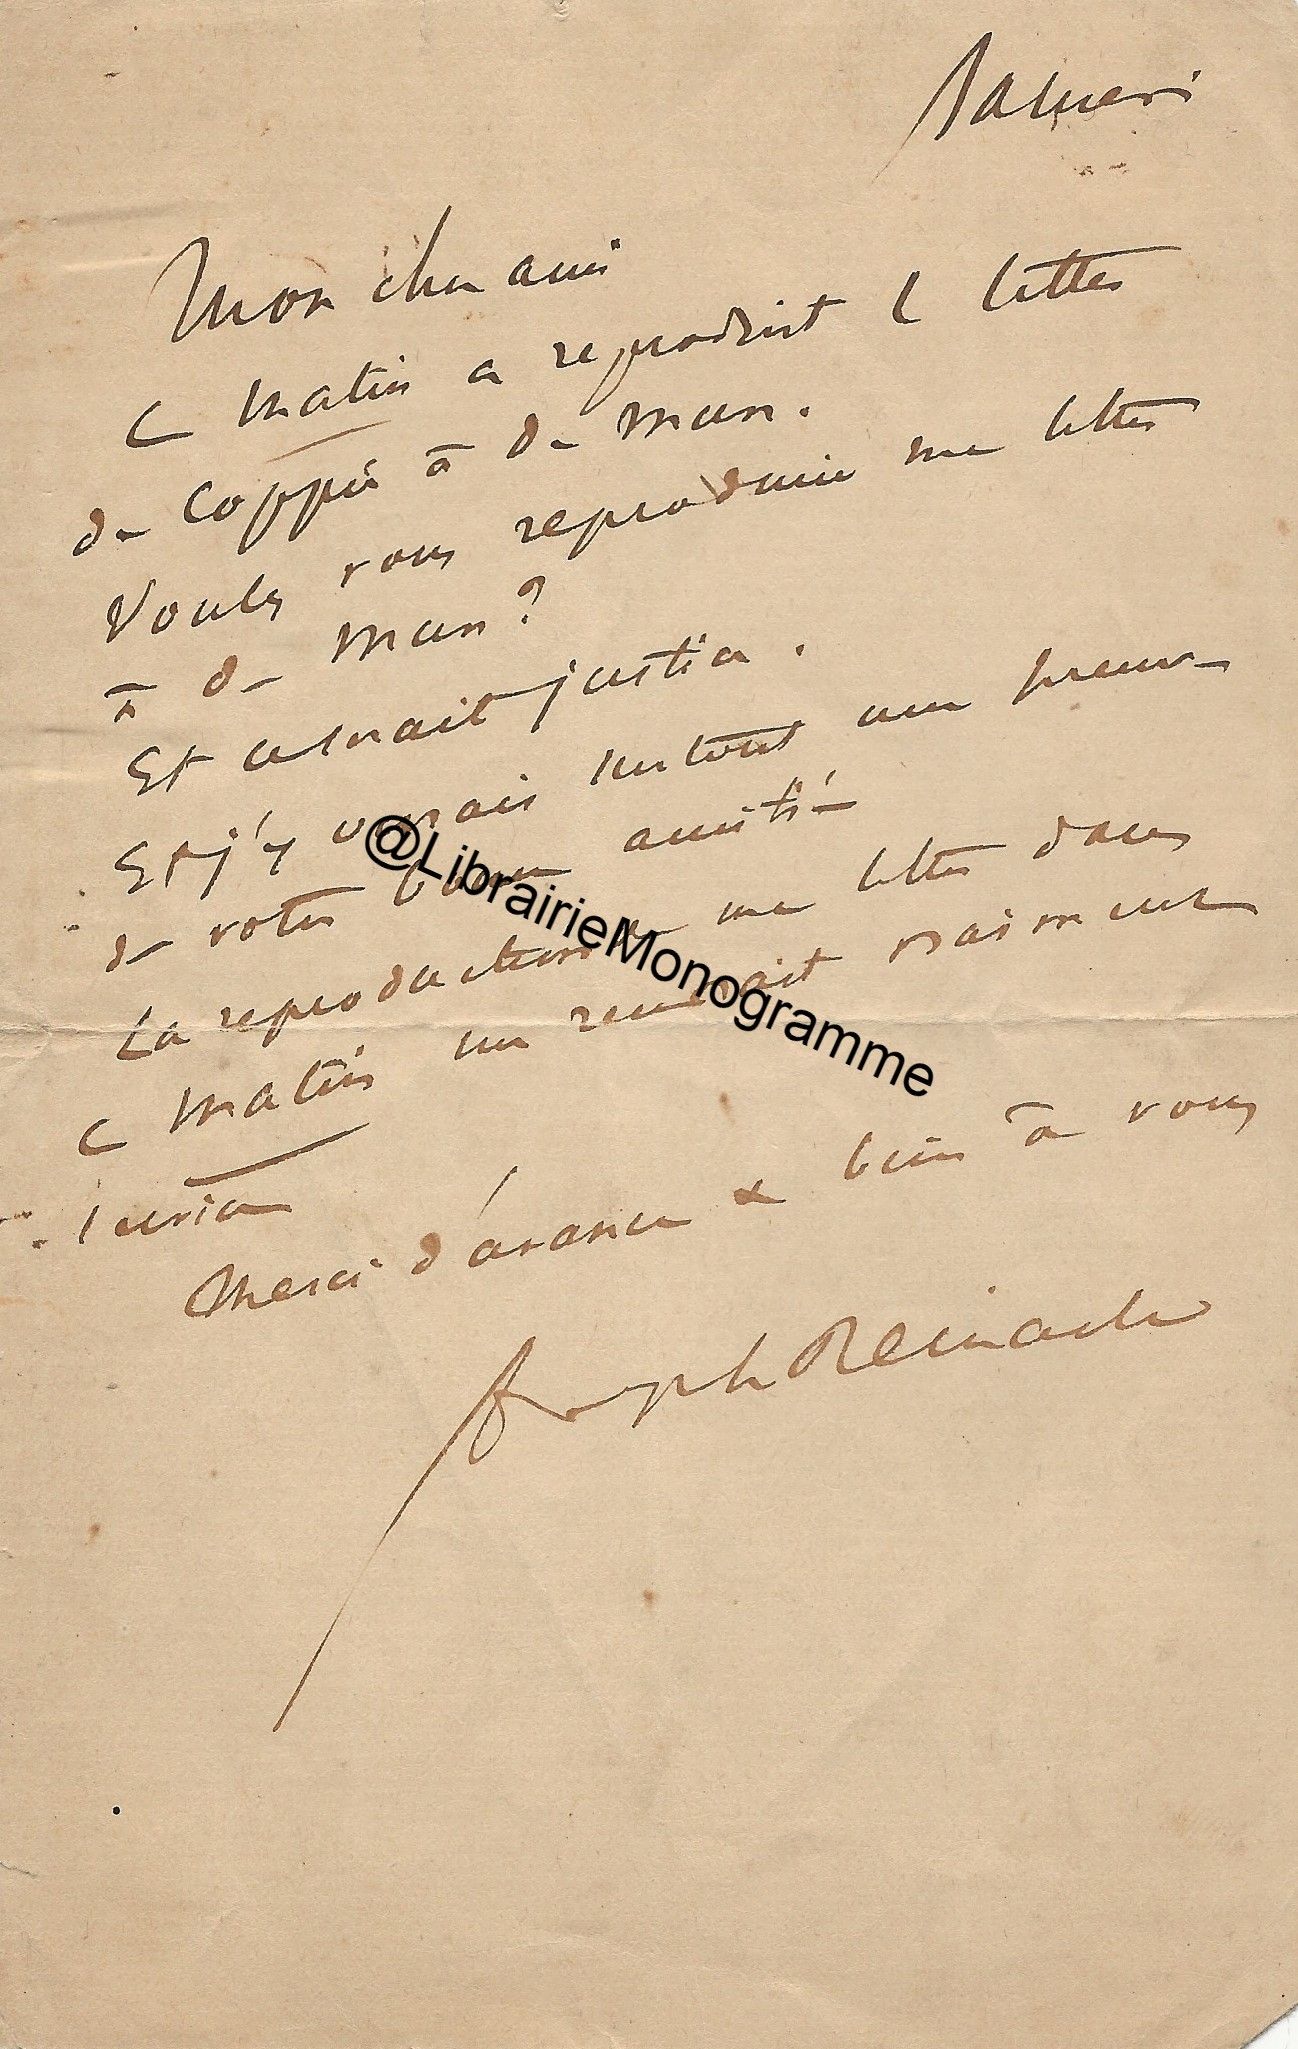 Samedi
Mon cher ami
Le Matin a reproduit la lettre
de Coppée à de Mun.
Voulez vous reproduire ma lettre
à de Mun?
Et ce serait justice.
Et j'y verrais surtout une preuve
de votre bonne amitié
La reproduction de ma lettre dans
le Matin me rendrait vraiment
service
Merci d'avance & bien à vous
Joseph Reinach
@LibrairieMonogramme